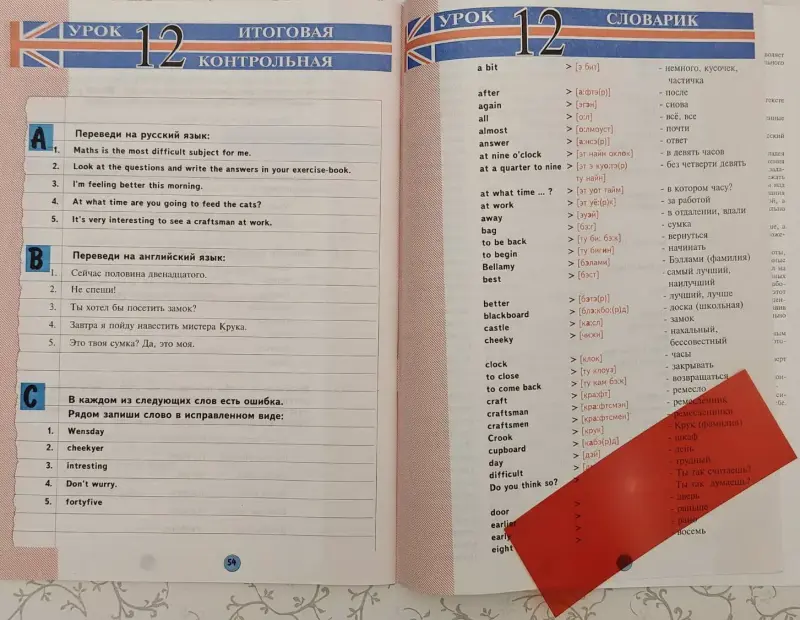 УРОК 12 ИТОГОВАЯ
КОНТРОЛЬНАЯ
A Переведи на русский язык:
1. Maths is the most difficult subject for me.
2. Look at the questions and write the answers in your exercise-book.
3. I'm feeling better this morning.
4. At what time are you going to feed the cats?
5. It's very interesting to see a craftsman at work.
B Переведи на английский язык:
1. Сейчас половина двенадцатого.
2. Не спеши!
3. Ты хотел бы посетить замок?
4. Завтра я пойду навестить мистера Крука.
5. Это твоя сумка? Да, это моя.
C В каждом из следующих слов есть ошибка.
Рядом запиши слово в исправленном виде:
1. Wensday
2. cheekyer
3. intresting
4. Don't wurry.
5. fortyfive
54
УРОК 12 СЛОВАРИК
a bit > [э бит] - немного, кусочек,
частичка
after > [а:фтэ(р)] - после
again > [эгэн] - снова
all > [о:л] - всё, все
almost > [о:лмоуст] - почти
answer > [а:нсэ(р)] - ответ
at nine o'clock > [эт найн оклок] - в девять часов
at a quarter to nine > [эт э куо:тэ(р) - без четверти девять
ту найн]
at what time ... ? > [эт уот тайм] - в котором часу?
at work > [эт уё:(р)к] - за работой
away > [эуэй] - в отдалении, вдали
bag > [бэ:г] - сумка
to be back > [ту би: бэ:к] - вернуться
to begin > [ту бигин] - начинать
Bellamy > [бэлэми] - Бэллами (фамилия)
best > [бэст] - самый лучший,
наилучший
better > [бэтэ(р)] - лучший, лучше
blackboard > [блэ:кбо:(р)д] - доска (школьная)
castle > [ка:сл] - замок
cheeky > [чи:ки] - нахальный,
бессовестный
clock > [клок] - часы
to close > [ту клоуз] - закрывать
to come back > [ту кам бэ:к] - возвращаться
craft > [кра:фт] - ремесло
craftsman > [кра:фтсмэн] - ремесленник
craftsmen > [кра:фтсмен] - ремесленники
Crook > [крук] - Крук (фамилия)
cupboard > [кабэ(р)д] - шкаф
day > [дэй] - день
difficult > - трудный
Do you think so? > - Ты так считаешь?
Ты так думаешь?
door > - дверь
earlier > - раньше
early > - рано
eight > - восемь